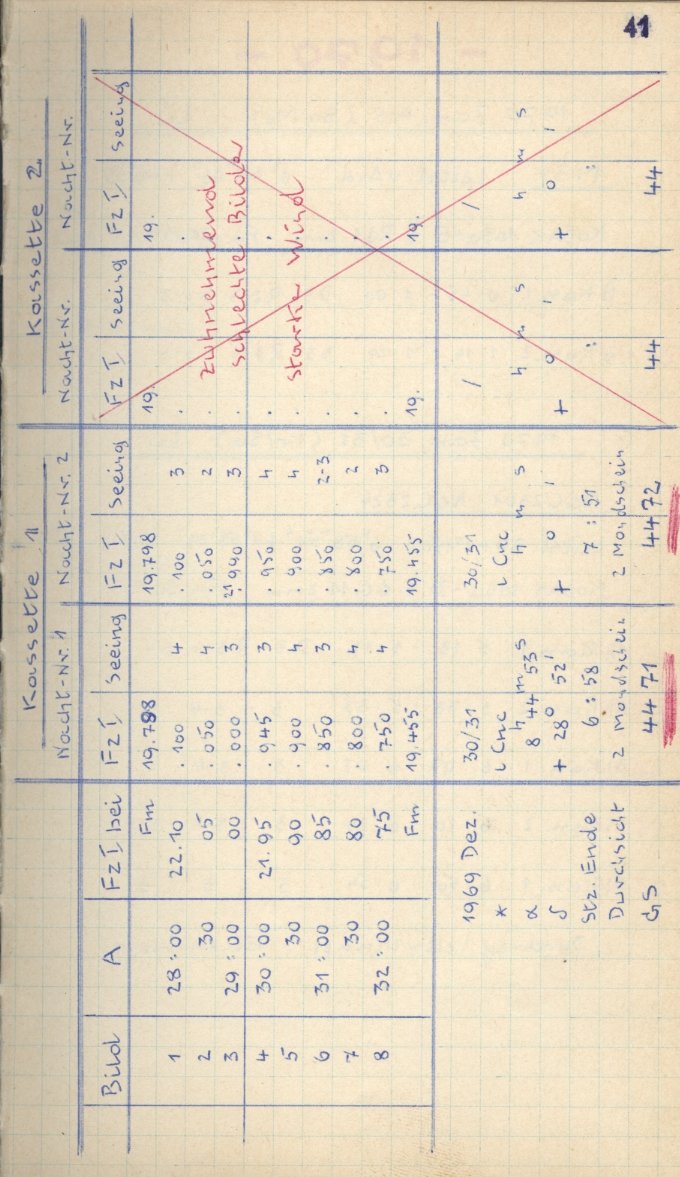 41
Kassette 1 Kassette 2
Nacht-Nr. 1 Nacht-Nr. 2 Nacht-Nr. Nacht-Nr.
Bild A FzI bei FzI Seeing FzI Seeing FzI Seeing FzI Seeing
Fm 19.798 19.798 19. 19.
1 28:00 22.10 .100 4 .100 3 . .
2 30 05 .050 4 .050 2 . .
3 29:00 00 .000 3 21.990 3 . .
4 30:00 21.95 .945 3 .950 4 . .
5 30 90 .900 4 .900 4 . .
6 31:00 85 .850 3 .850 2-3 . .
7 30 80 .800 4 .800 2 . .
8 32:00 75 .750 4 .750 3 . .
Fm 19.455 19.455 19. 19.
Zuhnehmend
schlechte Bilder
Starker Wind
1969 Dez. 30/31 30/31 / /
* ι Cnc ι Cnc
α 8 h 44 m 53 s h m s h m s h m s
δ + 28 o 52 ' + o ' + o ' + o '
Stz. Ende 6:58 7:51 : :
Durchsicht 2 Mondschein 2 Mondschein
GS 4471 4472 44 44